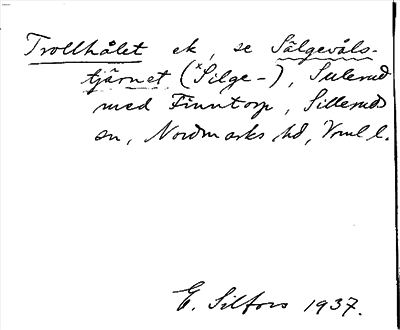 Trollhålet ek, se Sälgevåls-
tjärnet (*Silge-), Sulerud
med Finntorp, Sillerud
sn, Nordmarks hd, Vrml l.
E. Silfors 1937.